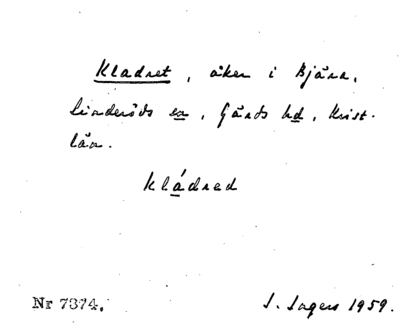 Kladret, åker i Bjära,
Linderöds sn, Gärds hd, Krist.
län.
Kládred
Nr 7374.
S. Lagers 1959.